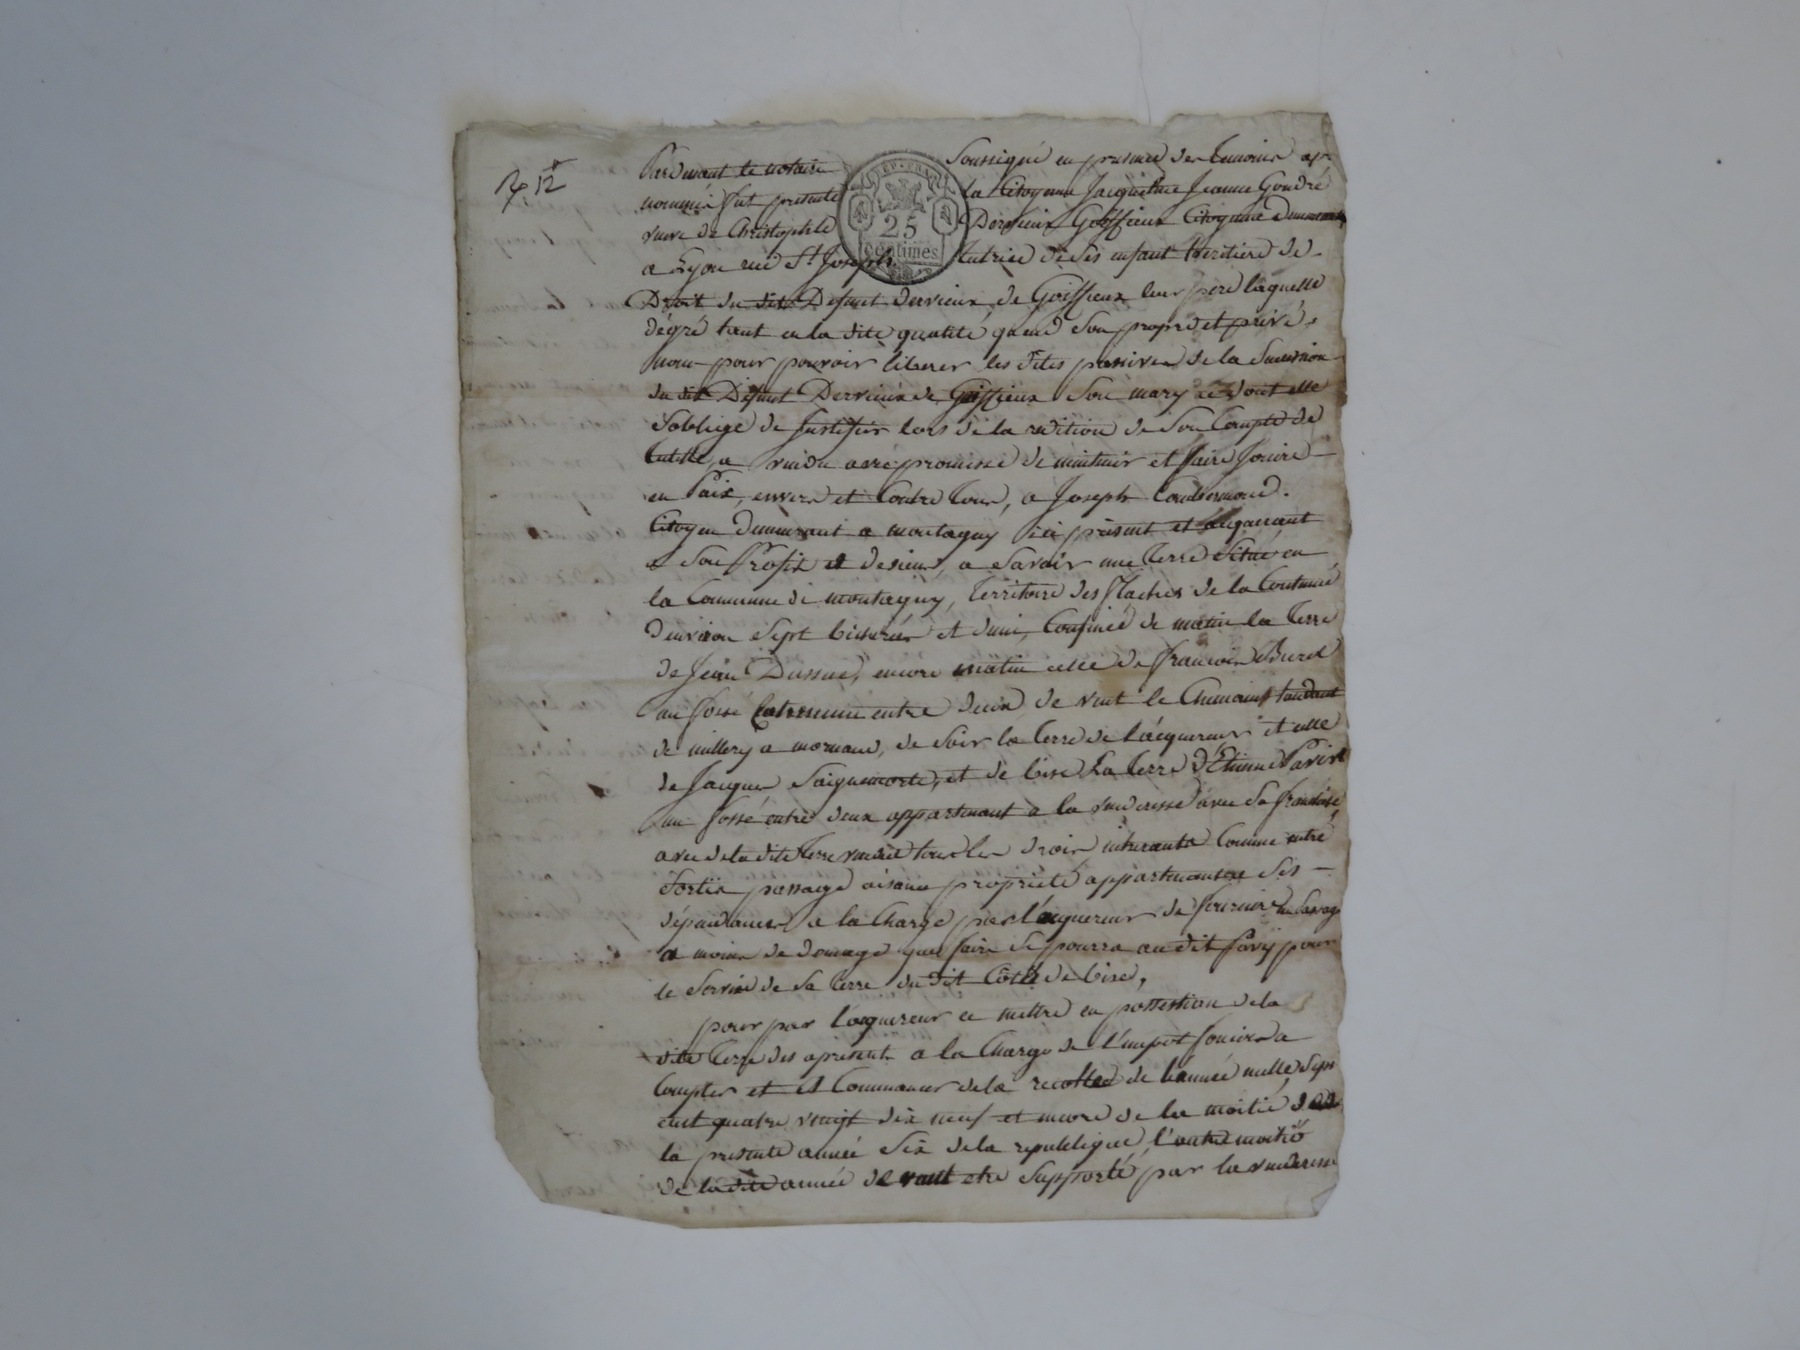 Pardevant le notaire Soussigné en presence des temoins apr
nommés fut presente la Citoyenne Jacqueline Jeanne Gondré
veuve de Christophle Dervieux Goiffieux Citoyenne Demeurant
a Lyon rue St Joseph tutrice de ses enfant heritiers de
REP. FRA.
25
centimes
Droit du dit Defunt dervieux de Goiffieux leur pere laquelle
dégré tant en la dite qualité quend son propre et privé
nom pour pouvoir liberer les dites passives de la Succession
du dit Defunt Dervieux de Goiffieux son mary ce dont elle
s'oblige de Justifier lors de la redition de son Compte de
tutelle, a vendu avec promesse de mintenir et faire Jouire
en Paix, envers et Contre tous, a Joseph
Citoyen Demeurant a montagny ici présent et acquerant
a son Profit et desiens, a Savoir une Terre Situé en
la Commune de montagny, Territoire des flaches de la Contenue
denviron Sept bicherées et demi, Confinée de matin la Terre
de Jean Dussuc, encore matin celle de francois Burel
un fossé entre deux de vent le Chemain tandant
de millery a mornand, de soir la terre de l'acquereur et celle
de Jacques Saignemorte, et de bise La terre d'Etienne Pavy
un fossé entre deux appartenant a la venderesse avec sa
avec de la dite Terre vendue tous les droits inherants Comme entré
Sortie passage aisance propriété appartenance ses
dépandances a la Charge par l'acquereur de fournir un Passage
a moins de domage que faire se pourra au dit Pavy pour
le Service de Sa terre du Dit Côté de bise,
pour par l'acquereur ce mettre en possession de la
dite Terre des apresent a la Charge de l'impot foncier a
Compter et Commancer de la recolte de l'année mille Sept
cent quatre vingt dix neuf et encore de la moitié de
la presente année Six de la republique, l'autre moitié
de la dite année devant etre Supporté par la venderesse